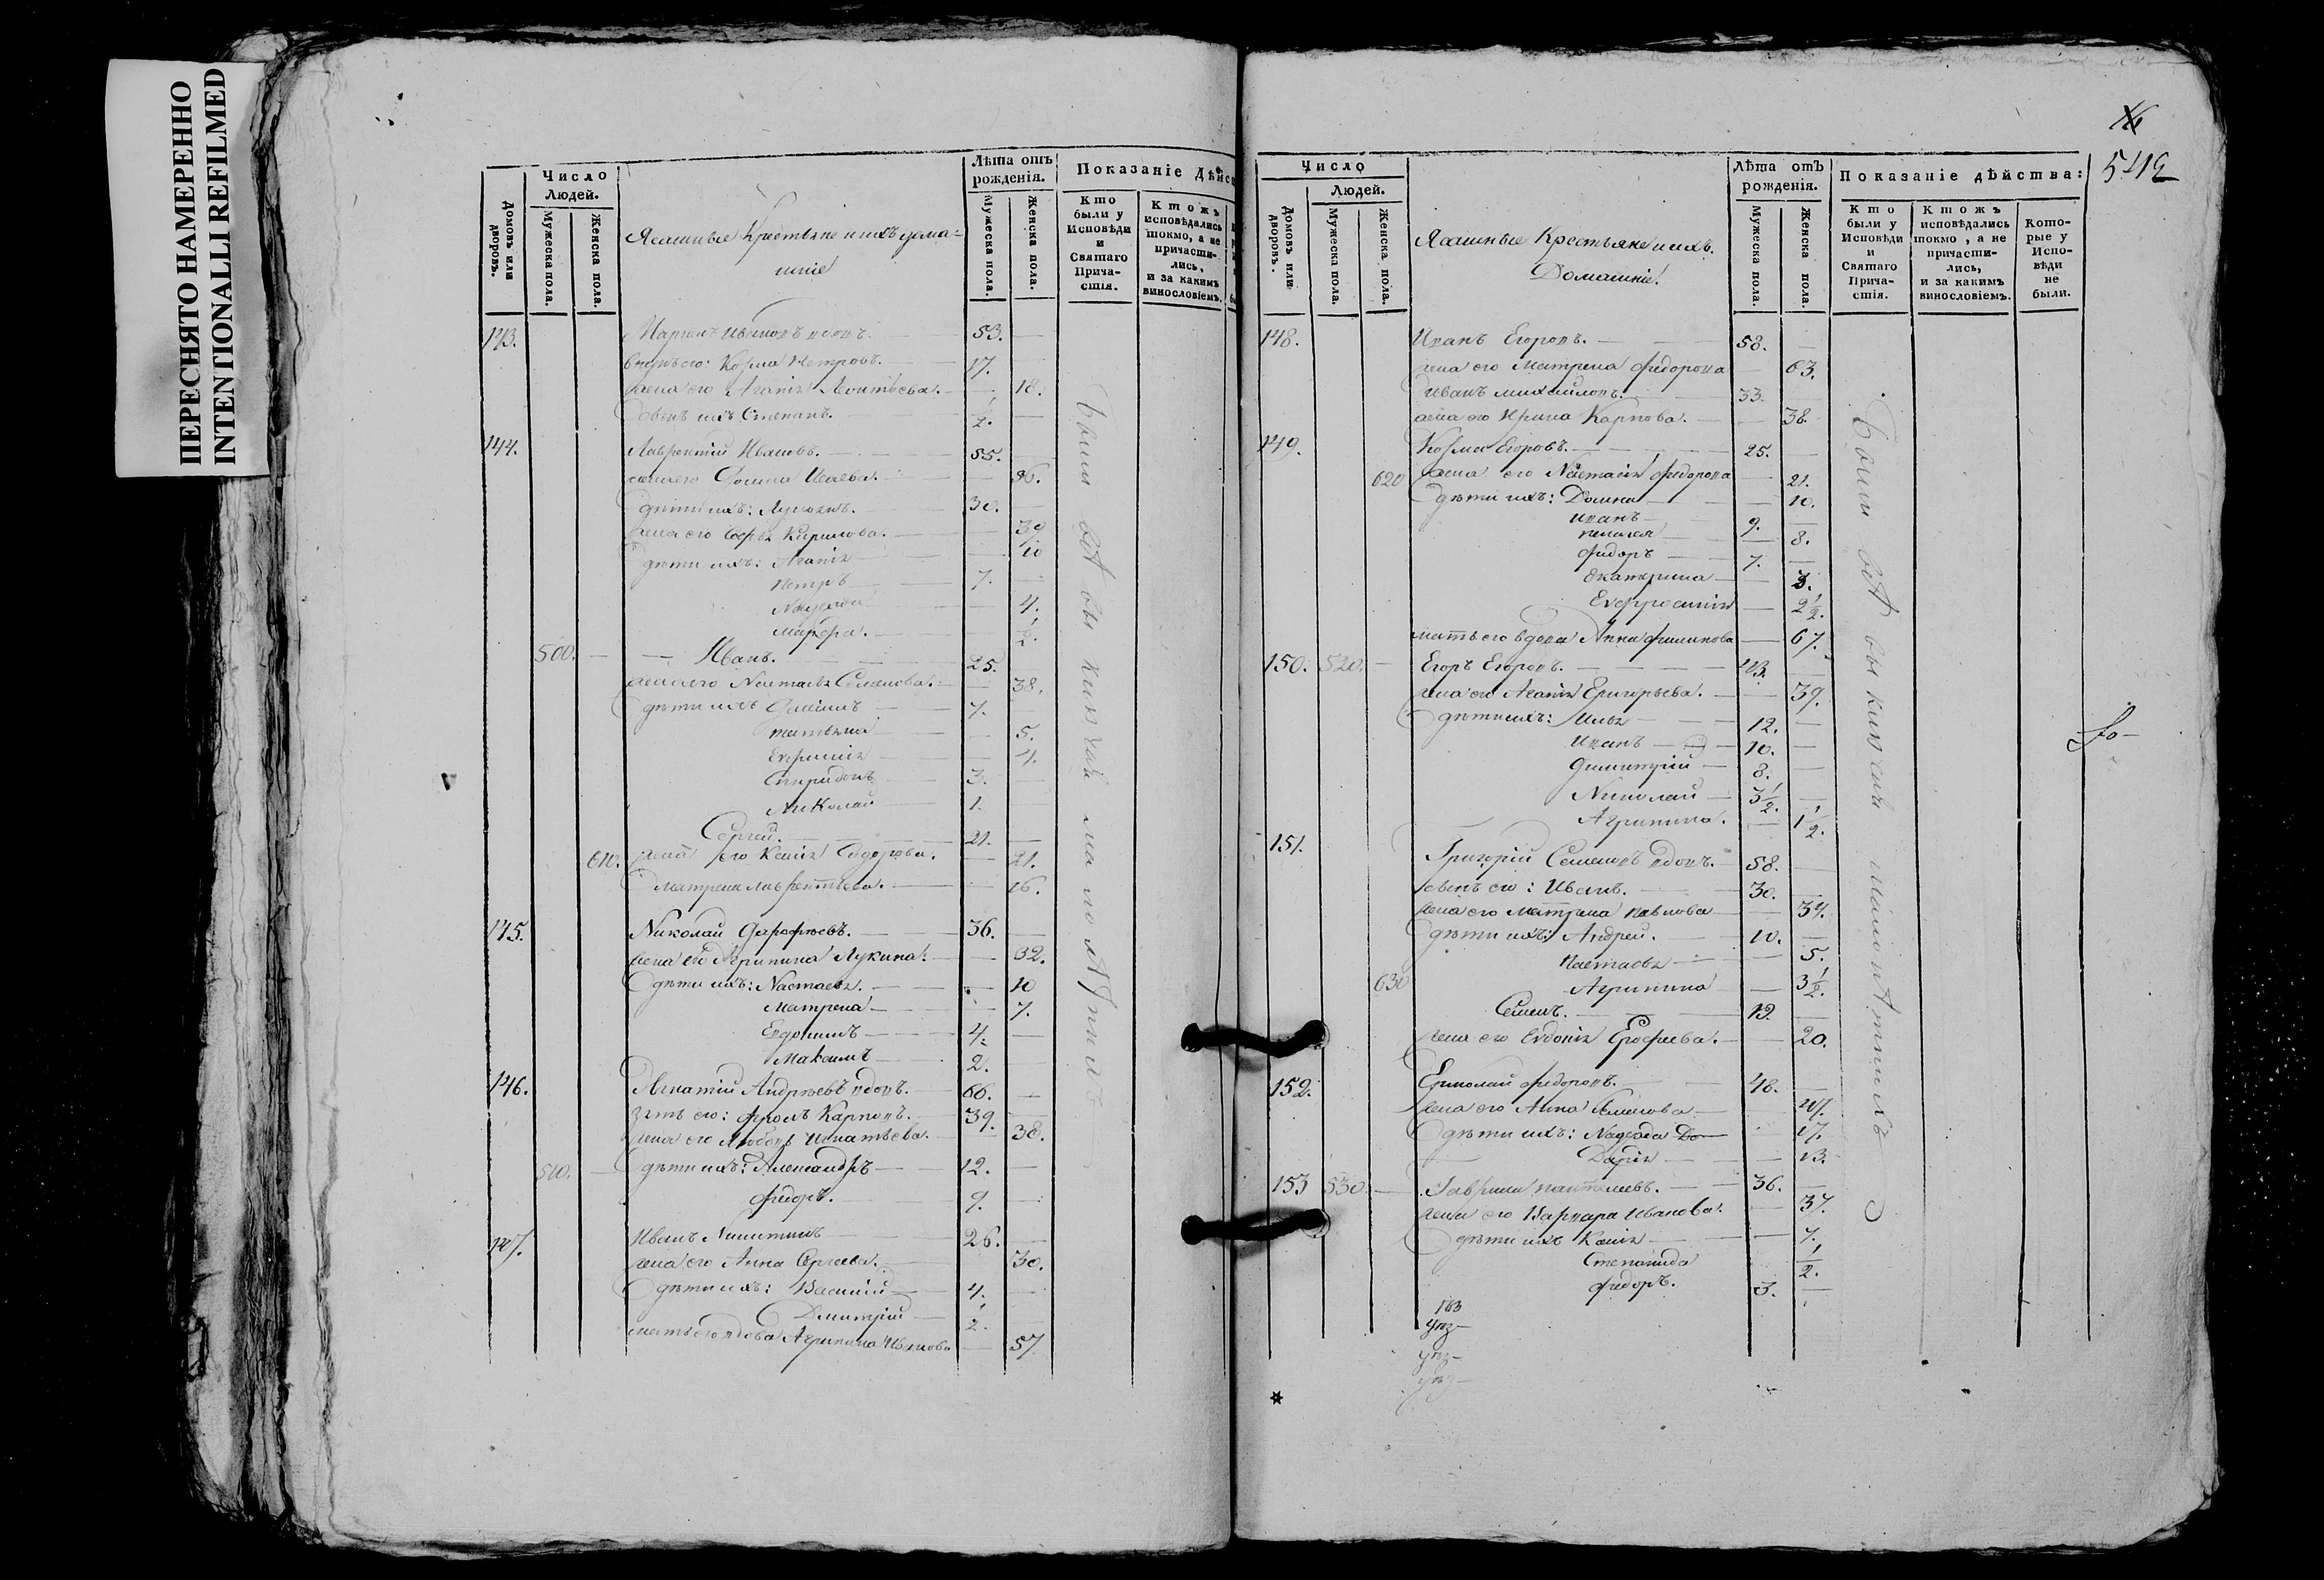 ПЕРЕСНЯТО НАМЕРЕННО
INTENTIONALLI REFILMED
Домовъ или дворовъ.
Число
Людей.
Мужеска пола.
Женска пола.
Ясашные Крестьяне и ихъ дома-
шніе
Лѣта отъ
рожденія.
Мужеска пола.
Женска пола.
Показаніе Дѣйс
Кто
были у
Исповѣди
и
Святаго
Прича-
стія.
Ктожъ
исповѣдались
токмо, а не
причасти-
лись,
и за какимъ
винословіемъ.
143. Ивановъ вдовъ. 53.
внукъ его: Козма Петровъ. 17.
жена его Агапія Леонтьева. 18.
сынъ ихъ Степанъ. 1/2.
144. Лаврентій Ивановъ. 55.
жена его 56.
дѣти ихъ: 30.
жена его Кирилова. 39
дѣти ихъ: Агапія 10
Петръ 7.
4.
Марфа. 1/2.
500. Иванъ. 25.
жена его Настасья Семенова. 38.
дѣти ихъ 7.
Татьяна 5.
4.
Спиридонъ 3.
Николай 1.
Сергей. 21.
610. жена его Ксенія 21.
Матрена Лаврентьева. 16.
145. Николай 36.
жена его Агрипина Лукина. 32.
дѣти ихъ: Настасья. 10
Матрена 7.
4.
Максимъ 2.
146. Игнатій Андреевъ вдовъ. 66.
зять его: Фролъ Карповъ. 39.
жена его Любовь Игнатьева. 38.
510. дѣти ихъ: Александръ 12.
Федоръ. 9.
147. Иванъ Никитинъ 26.
жена его Анна Сергеева. 30.
дѣти ихъ: Василій 4.
Дмитрій 1/2.
мать его вдова Агрипина Иванова 57.
5412
Число
Домовъ или дворовъ.
Людей.
Мужеска пола.
Женска пола.
Ясашные Крестьяне и ихъ
Домашніе.
Лѣта отъ
рожденія.
Мужеска пола.
Женска пола.
Показаніе дѣйства:
Кто
были у
Исповѣди
и
Святаго
Прича-
стія.
Ктожъ
исповѣдались
токмо, а не
причасти-
лись,
и за какимъ
винословіемъ.
Кото-
рые у
Испо-
вѣди
не
были.
148. Иванъ Егоровъ. 58.
жена его Матрена Федорова 63.
Иванъ Михайловъ. 33.
жена его Ирина Карпова. 38.
149. Козма Егоровъ. 25.
620 жена его Настасія Федорова 21.
дѣти ихъ: Домна 10.
Иванъ 9.
Пелагея 8.
Федоръ 7.
Екатерина 3.
Евфросинія 2 1/2.
мать его вдова Анна Филипова 67.
150. 520. Егоръ Егоровъ. 43.
жена его Агапія Григорьева. 39.
дѣти ихъ: Илья 12.
Иванъ 10.
Димитрій 8.
Николай 3 1/2.
Агрипина. 1 1/2.
151. Григорій Семеновъ вдовъ. 58.
сынъ его: Иванъ. 30.
жена его Матрена Павлова 34.
дѣти ихъ: Андрей. 10.
Настасья 5.
630 Агрипина 3 1/2.
Семенъ. 19.
жена его Евдокія Ерофеева. 20.
152. Ермолай Федоровъ. 48.
жена его Анна 47.
дѣти ихъ: Надежда 17.
Дарія 13.
153 530. Гаврила 36.
жена его Варвара Иванова. 37.
дѣти ихъ Ксенія 7.
Степанида 1/2.
Федоръ. 3.